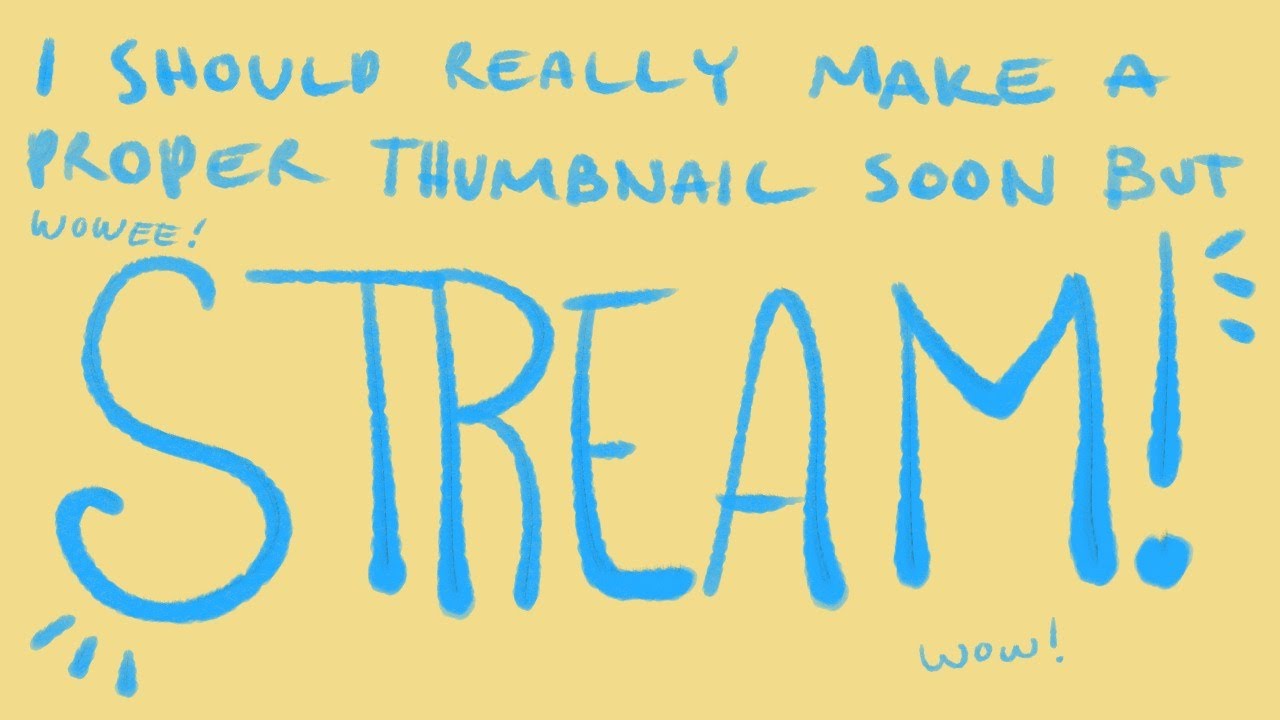 I SHOULD REALLY MAKE A
PROPER THUMBNAIL SOON BUT
WOWEE!
STREAM!
WOW!